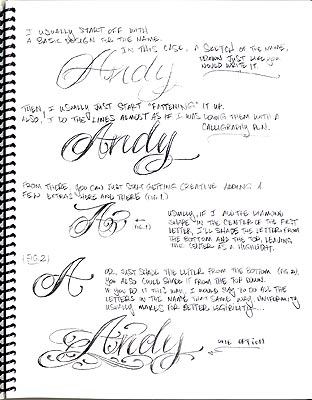 I USUALLY START OFF WITH
A BASIC DESIGN FOR THE NAME.
IN THIS CASE, A SKETCH OF THE NAME,
DRAWN JUST LIKE YOU
WOULD WRITE IT.
Andy
THEN, I USUALLY JUST START "FATTENING" IT UP.
ALSO, I DO THE LINES ALMOST AS IF I WAS DOING THEM WITH A
CALLIGRAPHY PEN.
Andy
FROM THERE, YOU CAN JUST START GETTING CREATIVE ADDING A
FEW EXTRAS HERE AND THERE (FIG. 1)
A
(FIG. 1)
USUALLY, IF I ADD THE DIAMOND
SHAPE IN THE CENTER OF THE FIRST
LETTER, I'LL SHADE THE LETTER FROM
THE BOTTOM AND THE TOP, LEAVING
THE CENTER AS A HIGHLIGHT.
(FIG 2)
A
OR, JUST SHADE THE LETTER FROM THE BOTTOM (FIG. 2).
YOU ALSO COULD SHADE IT FROM THE TOP DOWN.
IF YOU DO IT THIS WAY, I WOULD SAY TO DO ALL THE
LETTERS IN THE NAME THAT SAME WAY. UNIFORMITY
USUALLY MAKES FOR BETTER LEGIBILITY...
Andy
ONE OPTION